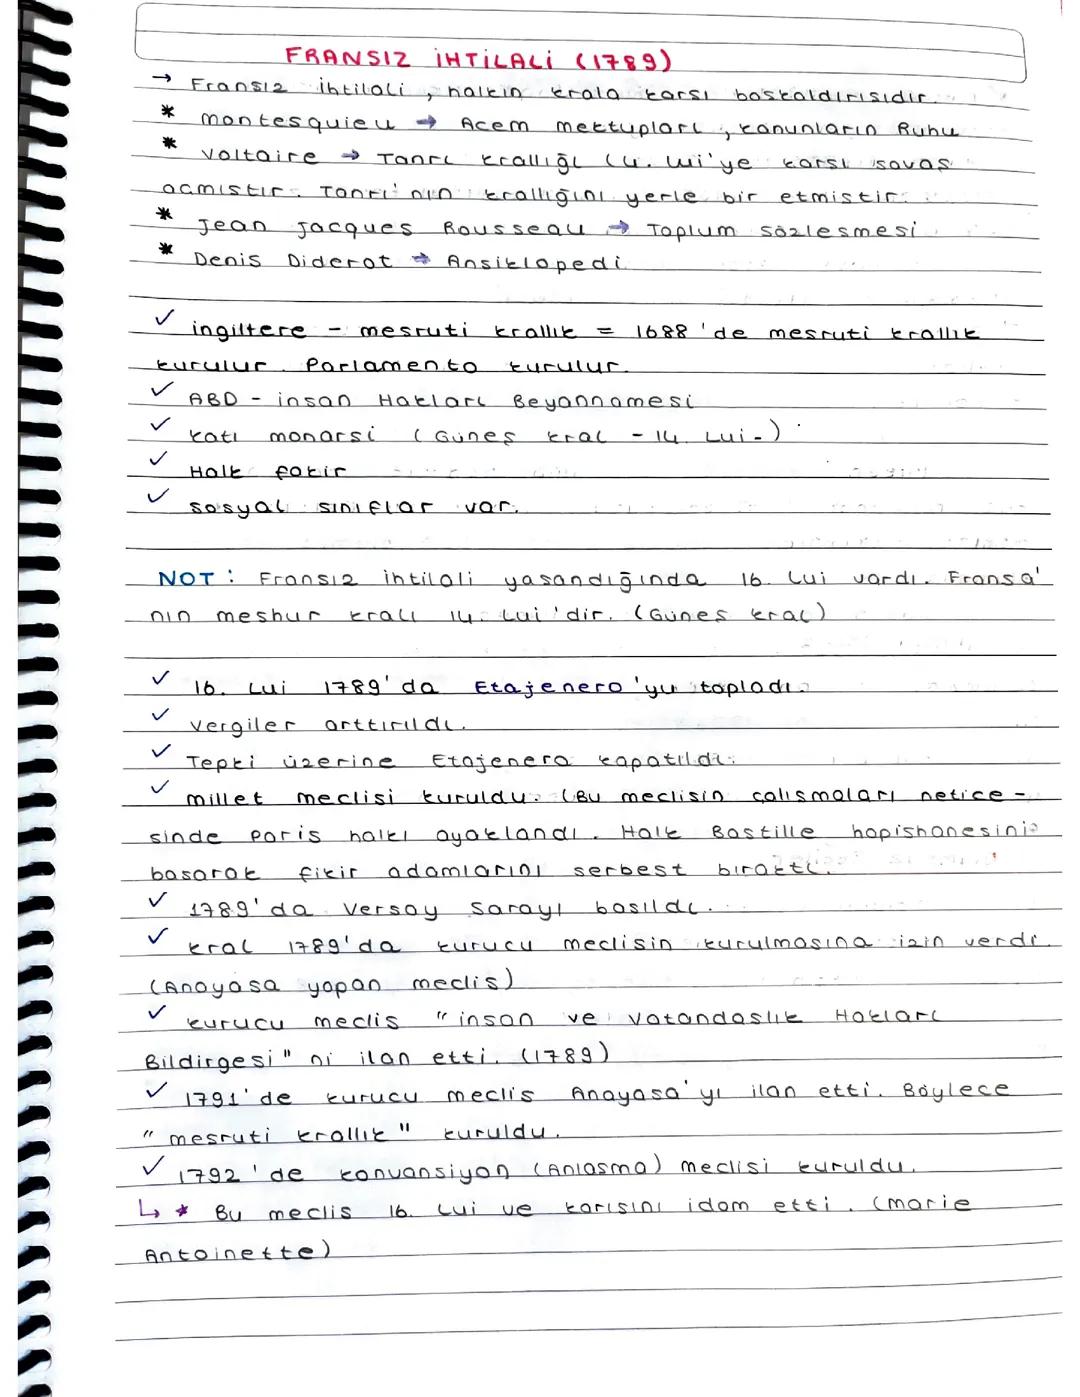 FRANSIZ İHTİLALİ (1789)
→ Fransız ihtilali, halkın krala karsı baskaldırısıdır.
* montesquieu → Acem mektupları, kanunların Ruhu
* Voltaire → Tanrı krallığı 14. Lui'ye karsı savas
acmıstır. Tanrı'nın krallığını yerle bir etmistir.
* Jean Jacques Rousseau → Toplum sözlesmesi
* Denis Diderot → Ansiklopedi
✓ ingiltere - mesruti krallık = 1688'de mesruti krallık
kurulur. Parlamento kurulur.
✓ ABD - insan Hakları Beyannamesi
✓ katı monarsi (Günes kral - 14. Lui-)
✓ Halk fakir
✓ sosyal sınıflar var.
NOT: Fransız ihtilali yasandığında 16. Lui vardı. Fransa'
nın meshur kralı 14. Lui'dir. (Günes kral)
✓ 16. Lui 1789'da Etajenero'yu topladı.
✓ vergiler arttırıldı.
✓ Tepki üzerine Etajenera kapatıldı.
✓ millet meclisi kuruldu. (Bu meclisin calısmaları netice-
sinde Paris halkı ayaklandı. Halk Bastille hapishanesini
basarak fikir adamlarını serbest bıraktı.
✓ 1789'da Versay Sarayı basıldı.
✓ kral 1789'da kurucu meclisin kurulmasına izin verdi.
(Anayasa yapan meclis)
✓ kurucu meclis "insan ve Vatandaslık Hakları
Bildirgesi" ni ilan etti. (1789)
✓ 1791'de kurucu meclis Anayasa'yı ilan etti. Böylece
"mesruti krallık" kuruldu.
✓ 1792'de konvansiyon (Anlasma) meclisi kuruldu.
↳ * Bu meclis 16. Lui ve karısını idam etti. (marie
Antoinette)